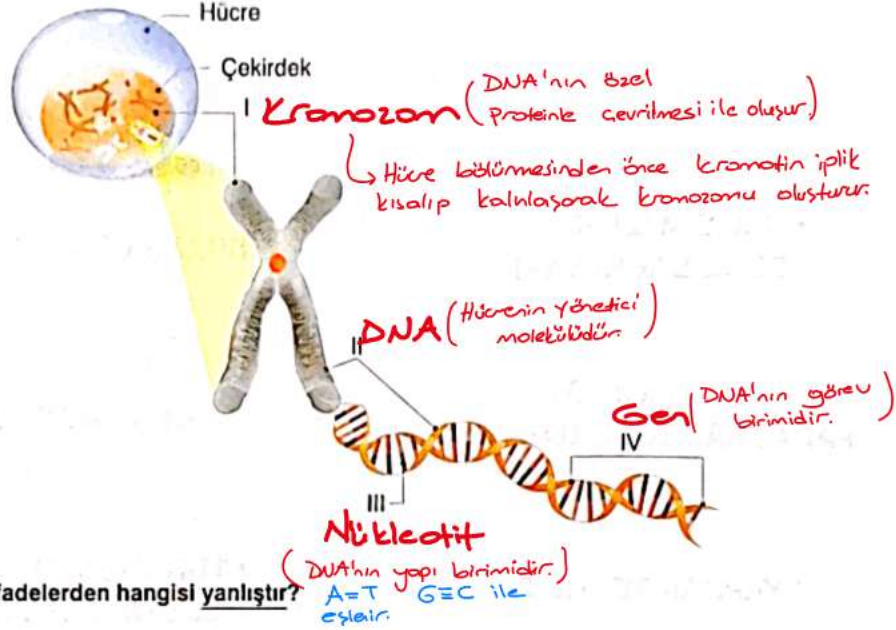 Hücre
Çekirdek
I Kromozom (DNA'nın özel
Proteinle çevrilmesi ile oluşur.)
Hücre bölünmesinden önce kromatin iplik
kısalıp kalınlaşarak kromozomu oluşturur.
II DNA (Hücrenin yönetici
molekülüdür.)
Gen (DNA'nın görev
birimidir.)
IV
III
Nükleotit
(DNA'nın yapı birimidir.)
fadelerden hangisi yanlıştır?
A=T G≡C ile
eşleir.